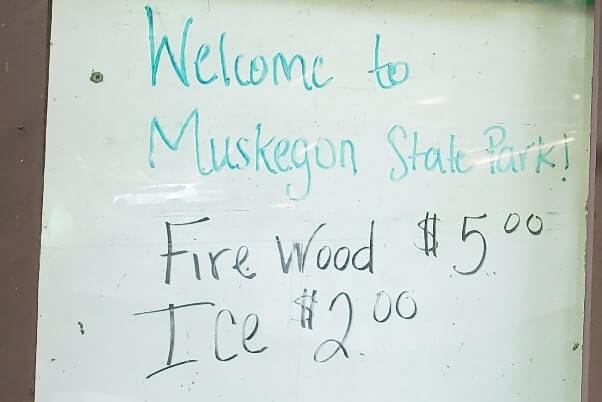 Welcome to
Muskegon State Park!
Fire Wood $5.00
Ice $2.00